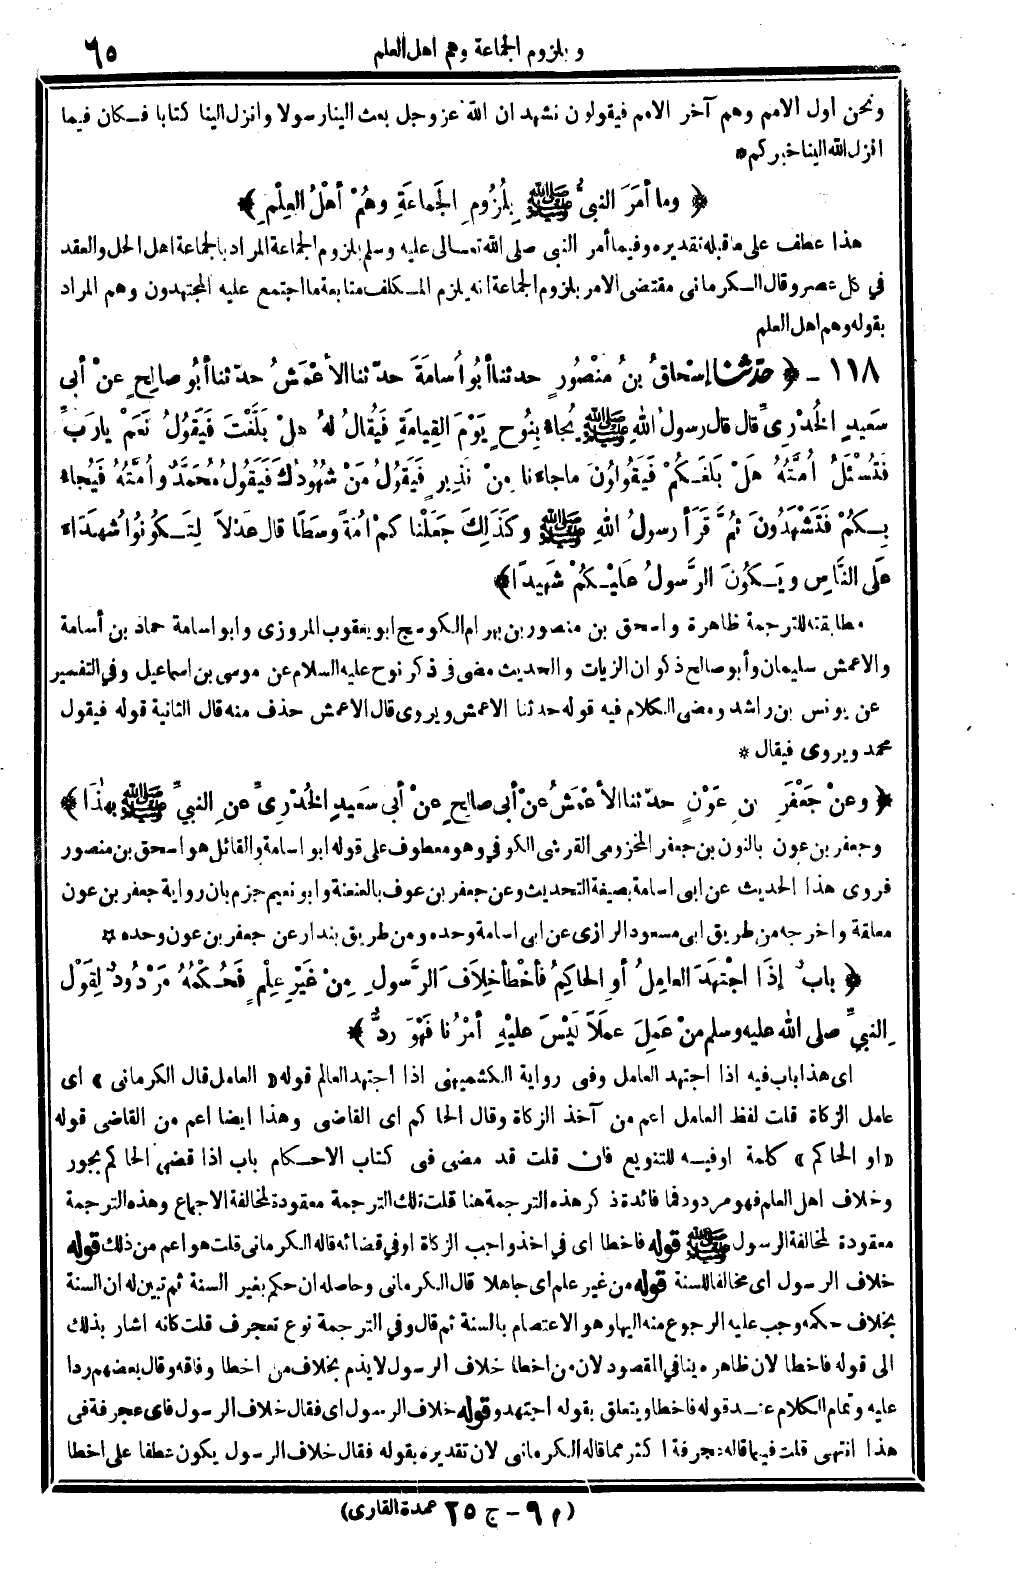 و بلزوم الجماعة وهم اهل العلم ٦٥
ونحن اول الامم وهم آخر الامم فيقولون نشهد ان الله عز وجل بعث الينا رسولا وانزل الينا كتابا فـكان فيما
انزل الله الينا خبركم *
﴿ وما أمَرَ النبيُّ ﷺ بِلُزُومِ الجَماعَةِ وهُمْ أهْلُ العِلْمِ ﴾
هذا عطف على ما قبله تقديره وفيما أمر النبى صلى الله تعـالى عليه وسلم بلزوم الجماعة المراد بالجماعة اهل الحل والعقد
في كل عصر وقال الـكرمانى مقتضى الامر بلزوم الجماعة انه يلزم المـكلف متابعة ما اجتمع عليه المجتهدون وهم المراد
بقوله وهم اهل العلم
١١٨ - ﴿ حدثنا إسْحاقُ بنُ مَنْصُورٍ حدثنا أبُو أُسامَةَ حدّثنا الأعْمَشُ حدّثنا أبُو صالِحٍ عنْ أبي
سَعِيدٍ الخُدْرِىِّ قال قال رسولُ اللهِ ﷺ يُجاءُ بِنُوحٍ يَوْمَ القِيامَةِ فَيُقالُ لهُ هلْ بَلَّغْتَ فَيَقُولُ نَعَمْ يارَبِّ
فَتُسْئَلُ أُمَّتُهُ هَلْ بَلَّغَـكُمْ فَيَقُولُونَ ماجاءَنا مِنْ نَذِيرٍ فَيَقُولُ مَنْ شُهُودُكَ فَيَقُولُ مُحَمَّدٌ وأُمَّتُهُ فَيُجاءُ
بِـكُمْ فَتَشْهَدُونَ ثُمَّ قَرَأ رسولُ اللهِ ﷺ وكَذَلِكَ جَعَلْنا كمْ أُمَّةً وسَطًا قال عَدْلاً لِتَـكُونُوا شُهَدَاءَ
عَلَى النَّاسِ ويَـكُونَ الرَّسولُ عَلَيْـكُمْ شَهِيدًا﴾
مطابقته للترجمة ظاهرة واسحق بن منصور بن بهرام الكوسج ابو يعقوب المروزى وابو اسامة حماد بن أسامة
والاعمش سليمان وأبو صالح ذكوان الزيات والحديث مضى فى ذكر نوح عليه السلام عن موسى بن اسماعيل وفي التفسير
عن يونس بن راشد ومضى الكلام فيه قوله حدثنا الاعمش ويروى قال الاعمش حذف منه قال الثانية قوله فيقول
محمد ويروى فيقال *
﴿ وعنْ جَعْفَرِ بنِ عَوْنٍ حدّثنا الأعْمَشُ عنْ أبي صالِحٍ عنْ أبي سَعِيدٍ الخُدْرِىِّ عنِ النبيِّ ﷺ بِهذَا ﴾
وجعفر بن عون بالنون بن جعفر المخزومى القرشى الكوفي وهو معطوف على قوله ابو اسامة والقائل هو اسحق بن منصور
فروى هذا الحديث عن ابى اسامة بصيغة التحديث وعن جعفر بن عوف بالعنعنة وابو نعيم جزم بان رواية جعفر بن عون
معلقة واخرجه من طريق ابى مسعود الرازى عن ابى اسامة وحده ومن طريق بندار عن جعفر بن عون وحده *
﴿ بابٌ إذَا اجْتَهَدَ العامِلُ أوِ الحاكِمُ فأخْطأ خِلافَ الرَّسولِ مِنْ غَيْرِ عِلْمٍ فَحُـكْمُهُ مَرْدُودٌ لِقَوْلِ
النبيِّ صلى الله عليه وسلم مَنْ عَمِلَ عَمَلاً لَيْسَ عَلَيْهِ أمْرُنا فَهْوَ ردٌّ ﴾
اى هذا باب فيه اذا اجتهد العامل وفى رواية الكشميهنى اذا اجتهد العالم قوله «العامل قال الكرمانى» اى
عامل الزكاة قلت لفظ العامل اعم من آخذ الزكاة وقال الحاكم اى القاضى وهذا ايضا اعم من القاضى قوله
«او الحاكم» كلمة او فيـه للتنويع فان قلت قد مضى فى كتاب الاحـكام باب اذا قضى الحاكم بجور
وخلاف اهل العلم فهو مردود فما فائدة ذكر هذه الترجمة هنا قلت تلك الترجمة معقودة لمخالفة الاجماع وهذه الترجمة
معقودة لمخالفة الرسول ﷺ قوله فاخطا اى في اخذ واجب الزكاة او في قضائه قاله الكرمانى قلت هو اعم من ذلك قوله
خلاف الرسول اى مخالفا للسنة قوله من غير علم اى جاهلا قال الكرمانى وحاصله ان حكم بغير السنة ثم تبين له ان السنة
بخلاف حكمه وجب عليه الرجوع منه اليها وهو الاعتصام بالسنة ثم قال وفي الترجمة نوع تعجرف قلت كانه اشار بذلك
الى قوله فاخطا لان ظاهره ينافي المقصود لان من اخطا خلاف الرسول لا يذم بخلاف من اخطا وفاقه وقال بعضهم ردا
عليه وتمام الكلام عنـد قوله فاخطا ويتعلق بقوله اجتهد وقوله خلاف الرسول اى فقال خلاف الرسول فاى عجرفة فى
هذا انتهى قلت فيما قاله عجرفة اكثر مما قاله الكرمانى لان تقديره بقوله فقال خلاف الرسول يكون عطفا على اخطا
(م ٩ - ج ٢٥ عمدة القارى)